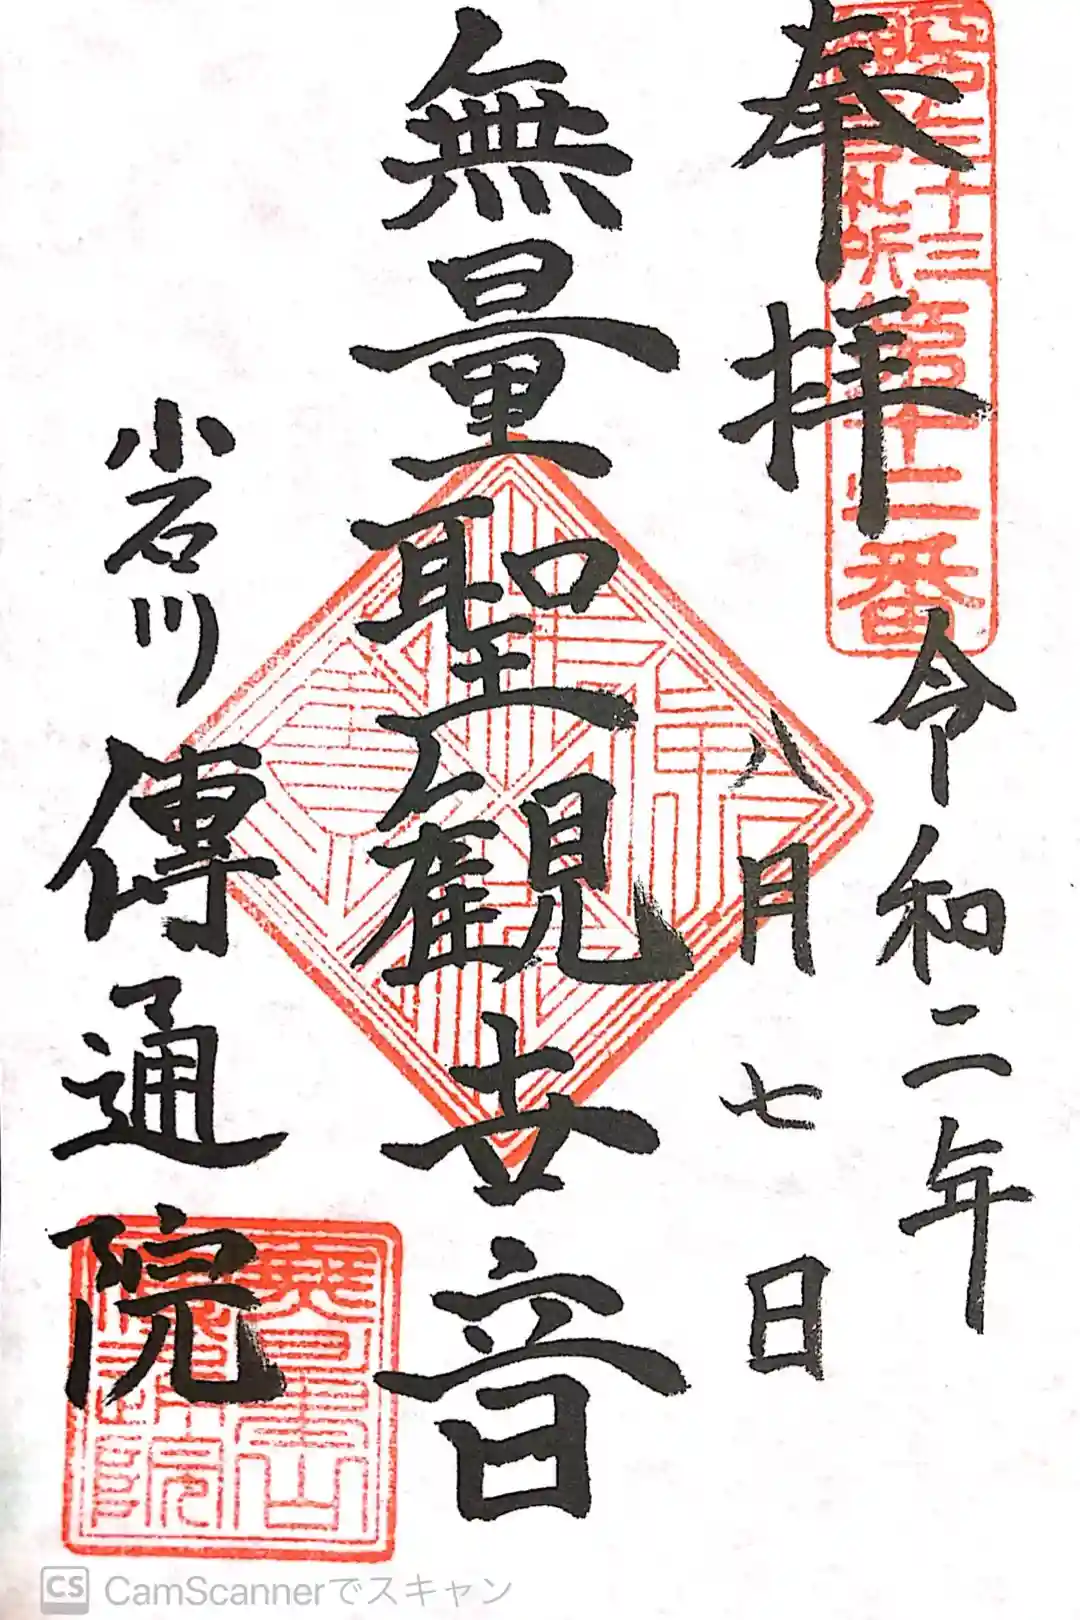 奉拝
昭和三十三
札所第十二番
令和二年
八月七日
無量聖観世音
小石川
傳通院
CS CamScannerでスキャン